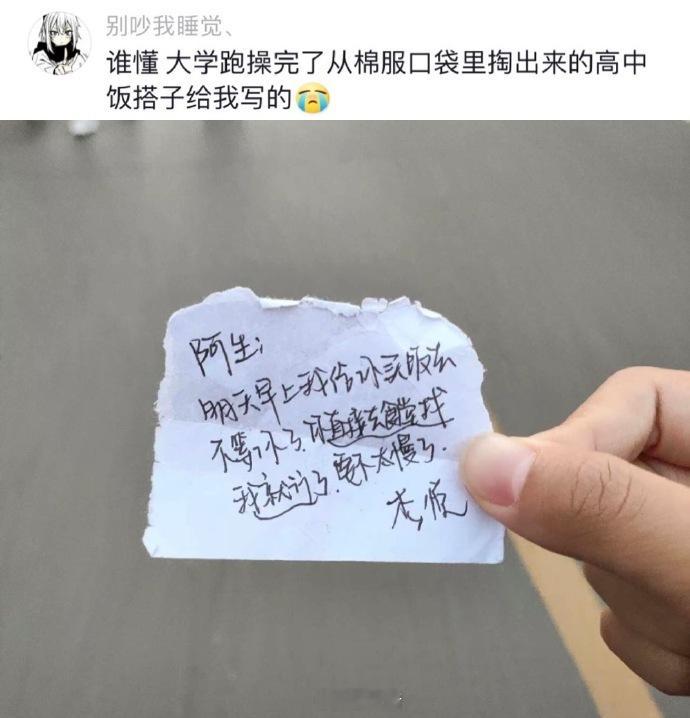 别吵我睡觉、
谁懂 大学跑操完了从棉服口袋里掏出来的高中
饭搭子给我写的😭
阿生:
明天早上我给你买饭去
不等你了.你直接去食堂找
我就行了.要不太慢了.
老顺